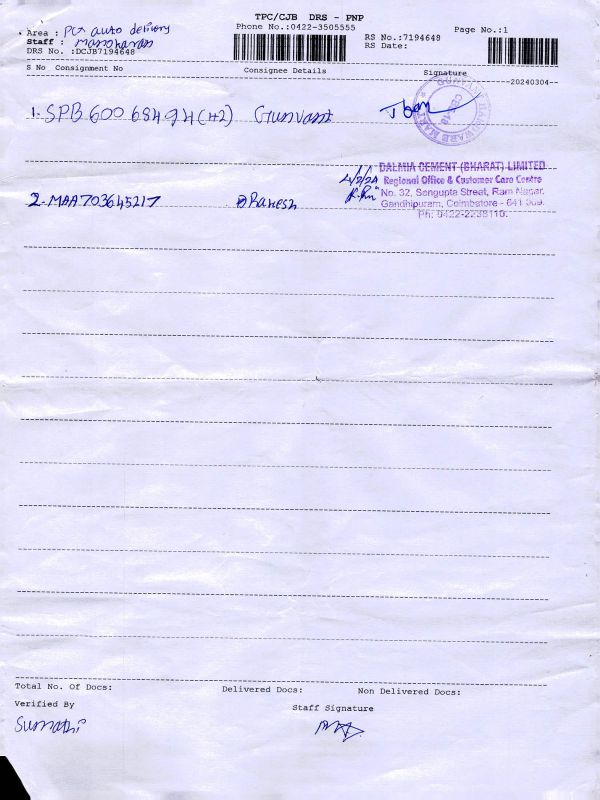 TPC/CJB DRS - PNP
Area : PCX auto delivery
Phone No.:0422-3505555
Page No.:1
Staff : Manoharan
RS No.:7194648
DRS No. :DCJB7194648
RS Date:
S No Consignment No
Consignee Details
Signature
--20240304--
1. SPB 600 68494 (+2) Gunvant
HARDWARE MART
CBE-18
DALMIA CEMENT (BHARAT) LIMITED
Regional Office & Customer Care Centre
No. 32, Sengupta Street, Ram Nagar,
Gandhipuram, Coimbatore - 641 009.
Ph: 0422-2238110.
2. MAA703645217 Rakesh
Total No. Of Docs:
Delivered Docs:
Non Delivered Docs:
Verified By
Staff Signature
Sumathi